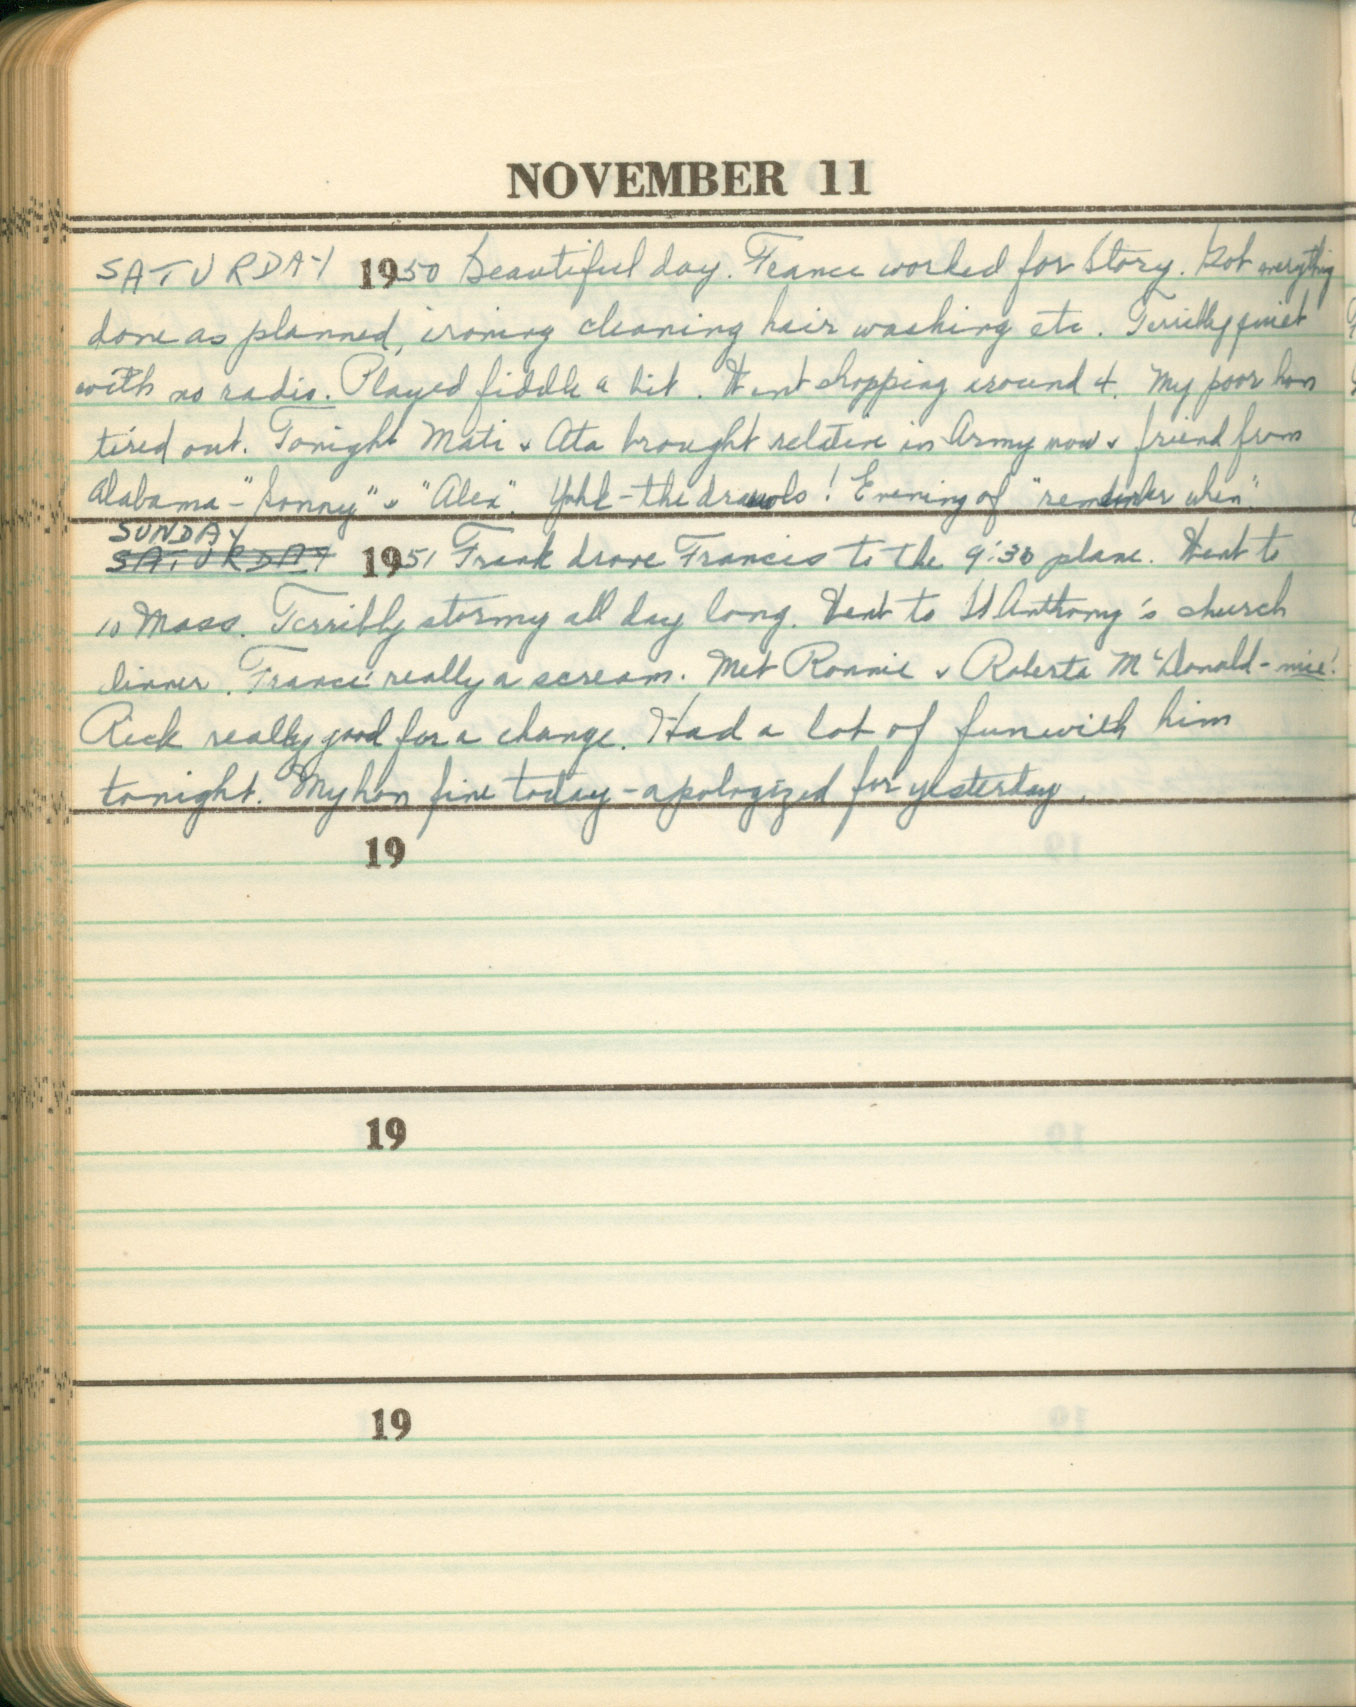 NOVEMBER 11
SATURDAY 1950 Beautiful day. France worked for Story. Got everything
done as planned, ironing cleaning hair washing etc. Terribly quiet
with no radio. Played fiddle a bit. Went shopping around 4. My poor hon
tired out. Tonight Mati & Ata brought relative in Army now & friend from
Alabama - "Sonny" & "Alex". - the drawls! Evening of "remember when"
SUNDAY
SATURDAY 1951 Frank drove Francis to the 9:30 plane. Went to
10 Mass. Terribly stormy all day long. Went to St Anthony's church
dinner. France really a scream. Met Ronnie & Roberta McDonald - nice!
Rick really good for a change. Had a lot of fun with him
tonight. My hon fine today - apologized for yesterday.
19
19
19